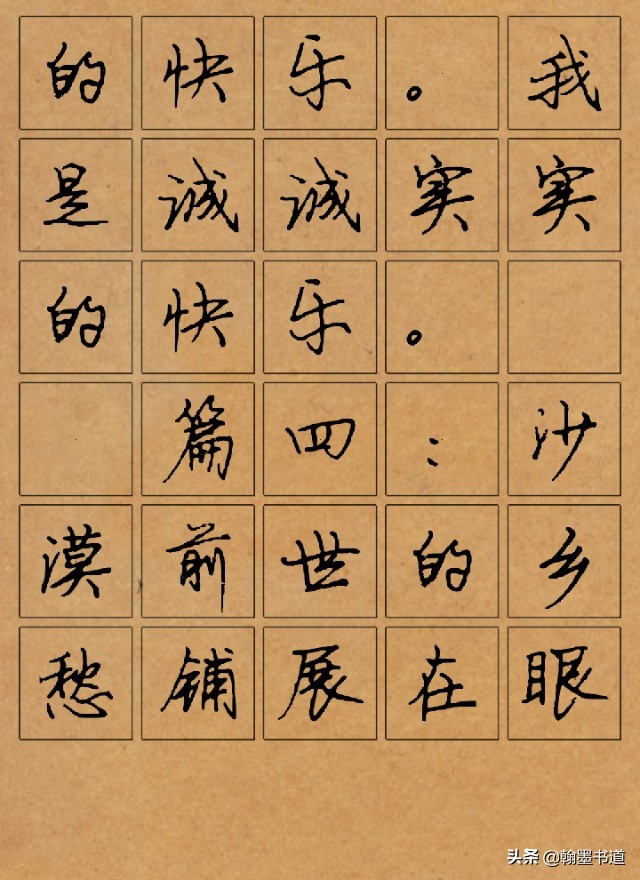 的快乐。我
是诚诚实实
的快乐。
篇四：沙
漠前世的乡
愁铺展在眼
头条 @翰墨书道